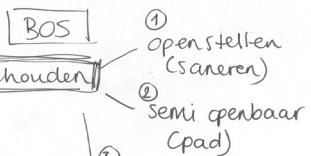 BOS
houden
①
openstellen
(saneren)
②
semi openbaar
(pad)
③